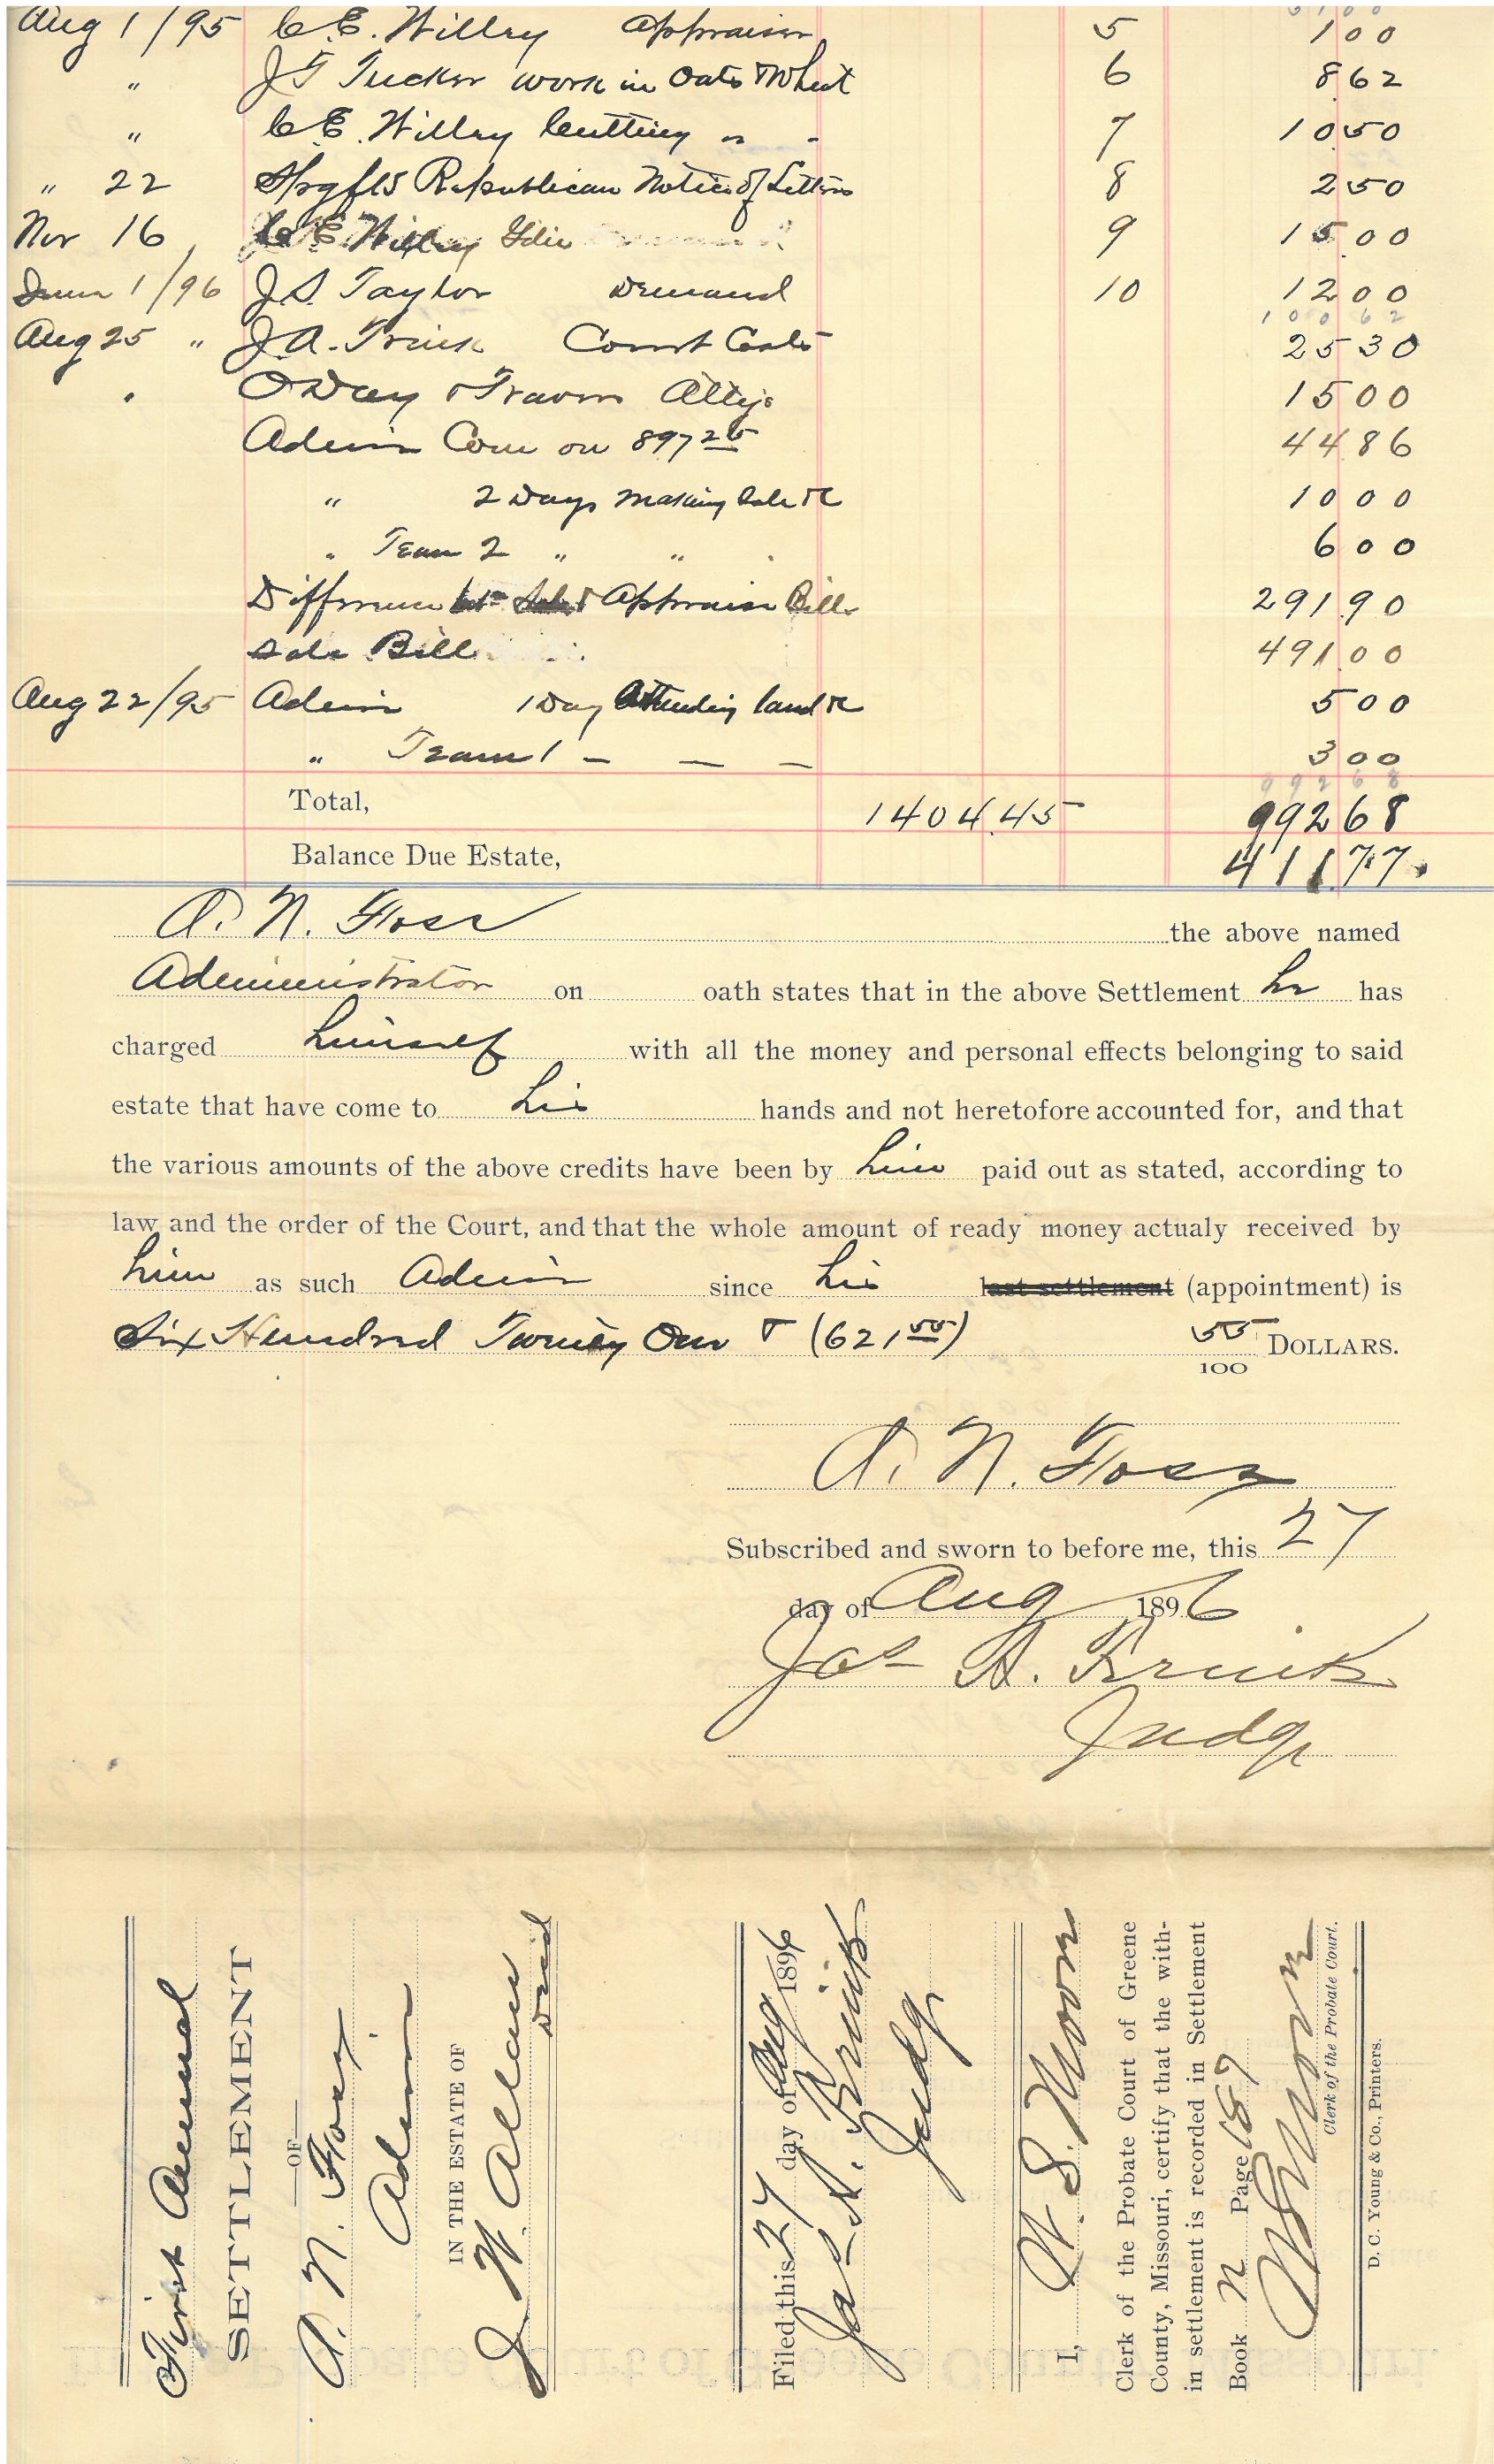 5 1 0 0
Aug 1/95 C.E. Willey Appraiser 5 1 00
" J T Tucker work in Oats & Wheat 6 8 62
" C.E. Willey Cutting " " 7 10 50
" 22 Spgfld Republican Notice of Letters 8 2 50
Nov 16 C E Willey 9 15 00
June 1/96 J.S. Taylor Demand 10 12 00
1 0 0 6 2
Aug 25 " J.A. Frink Court Costs 25 30
" ODay & Travers Attys 15 00
Admin Com on 897 25 44 86
" 2 Days making Sale &c 10 00
" Team 2 " " " 6 00
Difference bet Sale & Appraise Bill 291 90
Sale Bill 491 00
Aug 22/95 Admin 1 Day Attending land &c 5 00
" Team 1 — — — 3 00
9 9 2 6 8
Total, 1404.45 992 68
Balance Due Estate, 411 77
A. N. Foss the above named
Administrator on oath states that in the above Settlement he has
charged himself with all the money and personal effects belonging to said
estate that have come to his hands and not heretofore accounted for, and that
the various amounts of the above credits have been by him paid out as stated, according to
law and the order of the Court, and that the whole amount of ready money actualy received by
him as such Admin since his last settlement (appointment) is
Six Hundred Twenty One & (621 55) 55/100 DOLLARS.
A. N. Foss
Subscribed and sworn to before me, this 27
day of Aug 1896
Jas A. Frink
Judge
First Annual
SETTLEMENT
OF
A. N. Foss
Admin
IN THE ESTATE OF
J W. Allen
Decd
Filed this 27 day of Aug 1896
Jas A. Frink
Judge
I, W. S. Moore
Clerk of the Probate Court of Greene
County, Missouri, certify that the with-
in settlement is recorded in Settlement
Book N Page 187
W S Moore
Clerk of the Probate Court.
D. C. Young & Co., Printers.